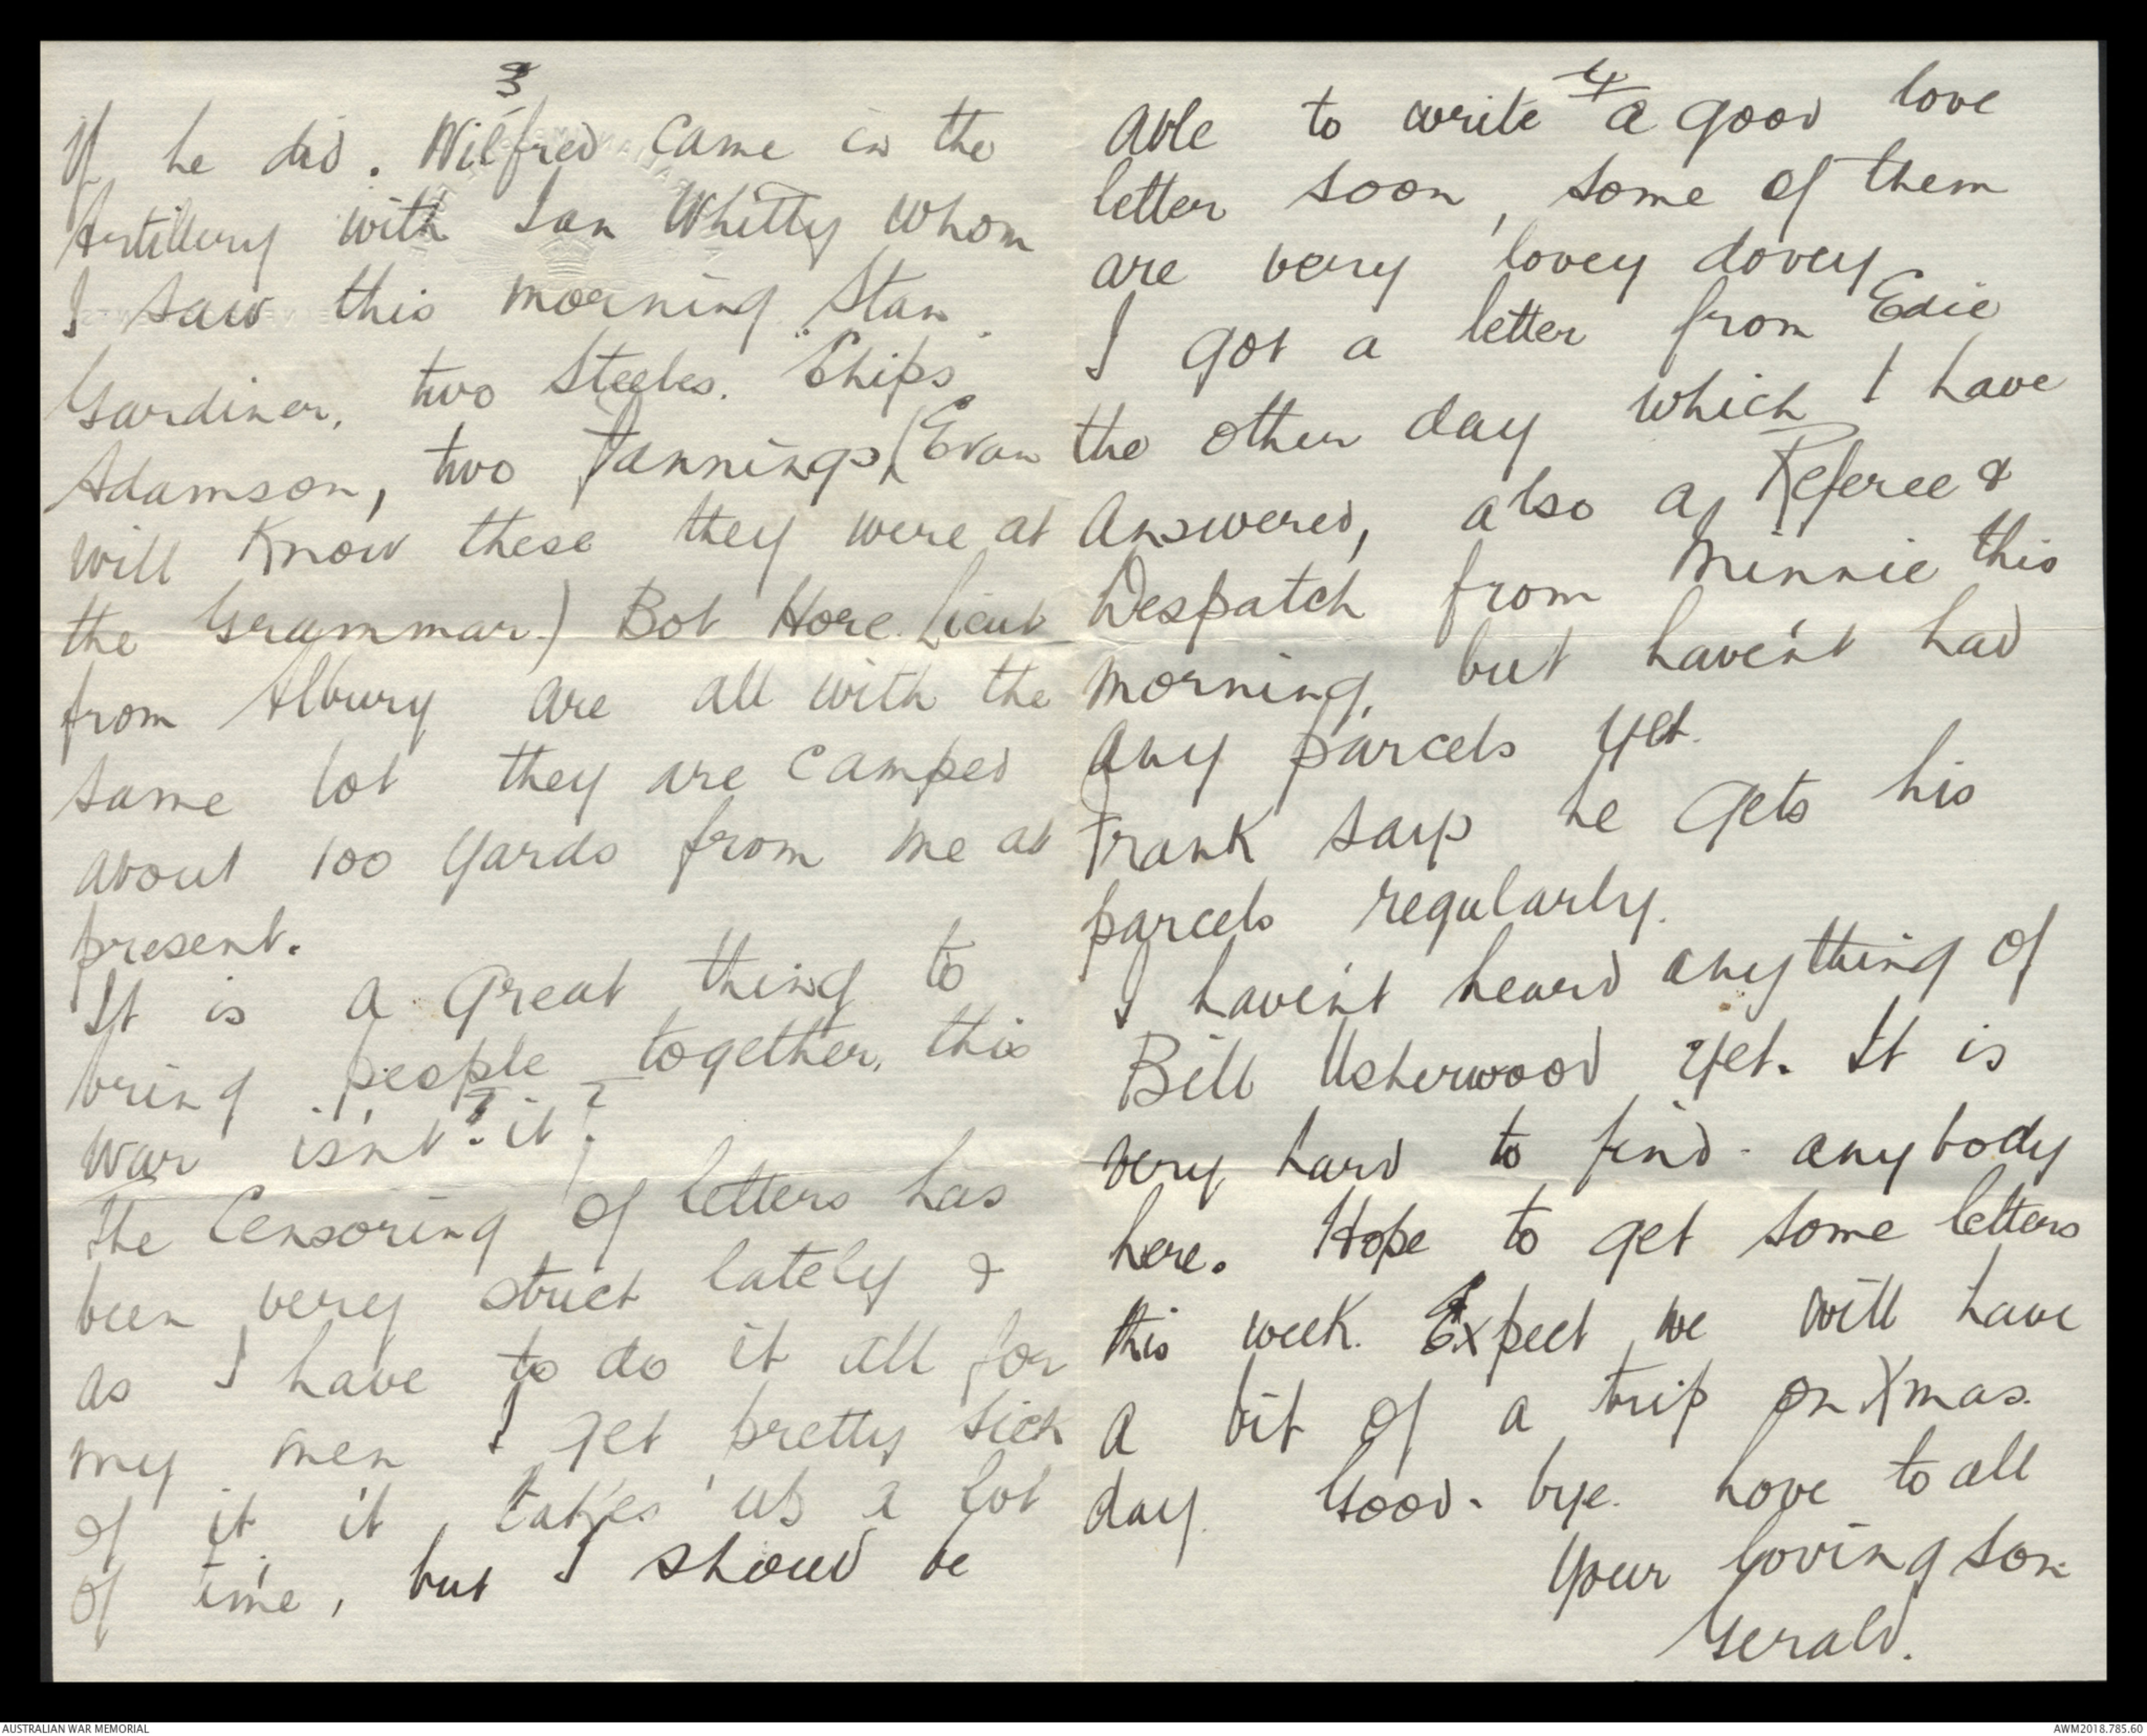 3
If he did. Wilfred came in the
Artillery with Ian Whitty whom
I saw this morning. Stan
Gardiner, two Steeles. "Chips"
Adamson, two Fannings, (Evan
will know these they were at
the Grammar.) Bob Hore. Lieut
from Albury are all with the
same lot they are camped
about 100 yards from me at
present.
It is a great thing to
bring people together, this
war isn't? it?
The Censoring of letters has
been very strict lately &
as I have to do it all for
my men I get pretty sick
of it it takes us a lot
of time, but I shoud be
4
able to write a good love
letter soon, some of them
are very lovey dovey
I got a letter from Edie
the other day which I have
answered, also a Referee &
Despatch from Minnie this
morning, but haven't had
any parcels yet.
Frank says he gets his
parcels regularly.
I haven't heard anything of
Bill Usherwood yet. It is
very hard to find - anybody
here. Hope to get some letters
this week. Expect we will have
a bit of a trip on Xmas.
day. Good-bye. Love to all
Your loving son
Gerald.
AUSTRALIAN WAR MEMORIAL
AWM2018.785.60